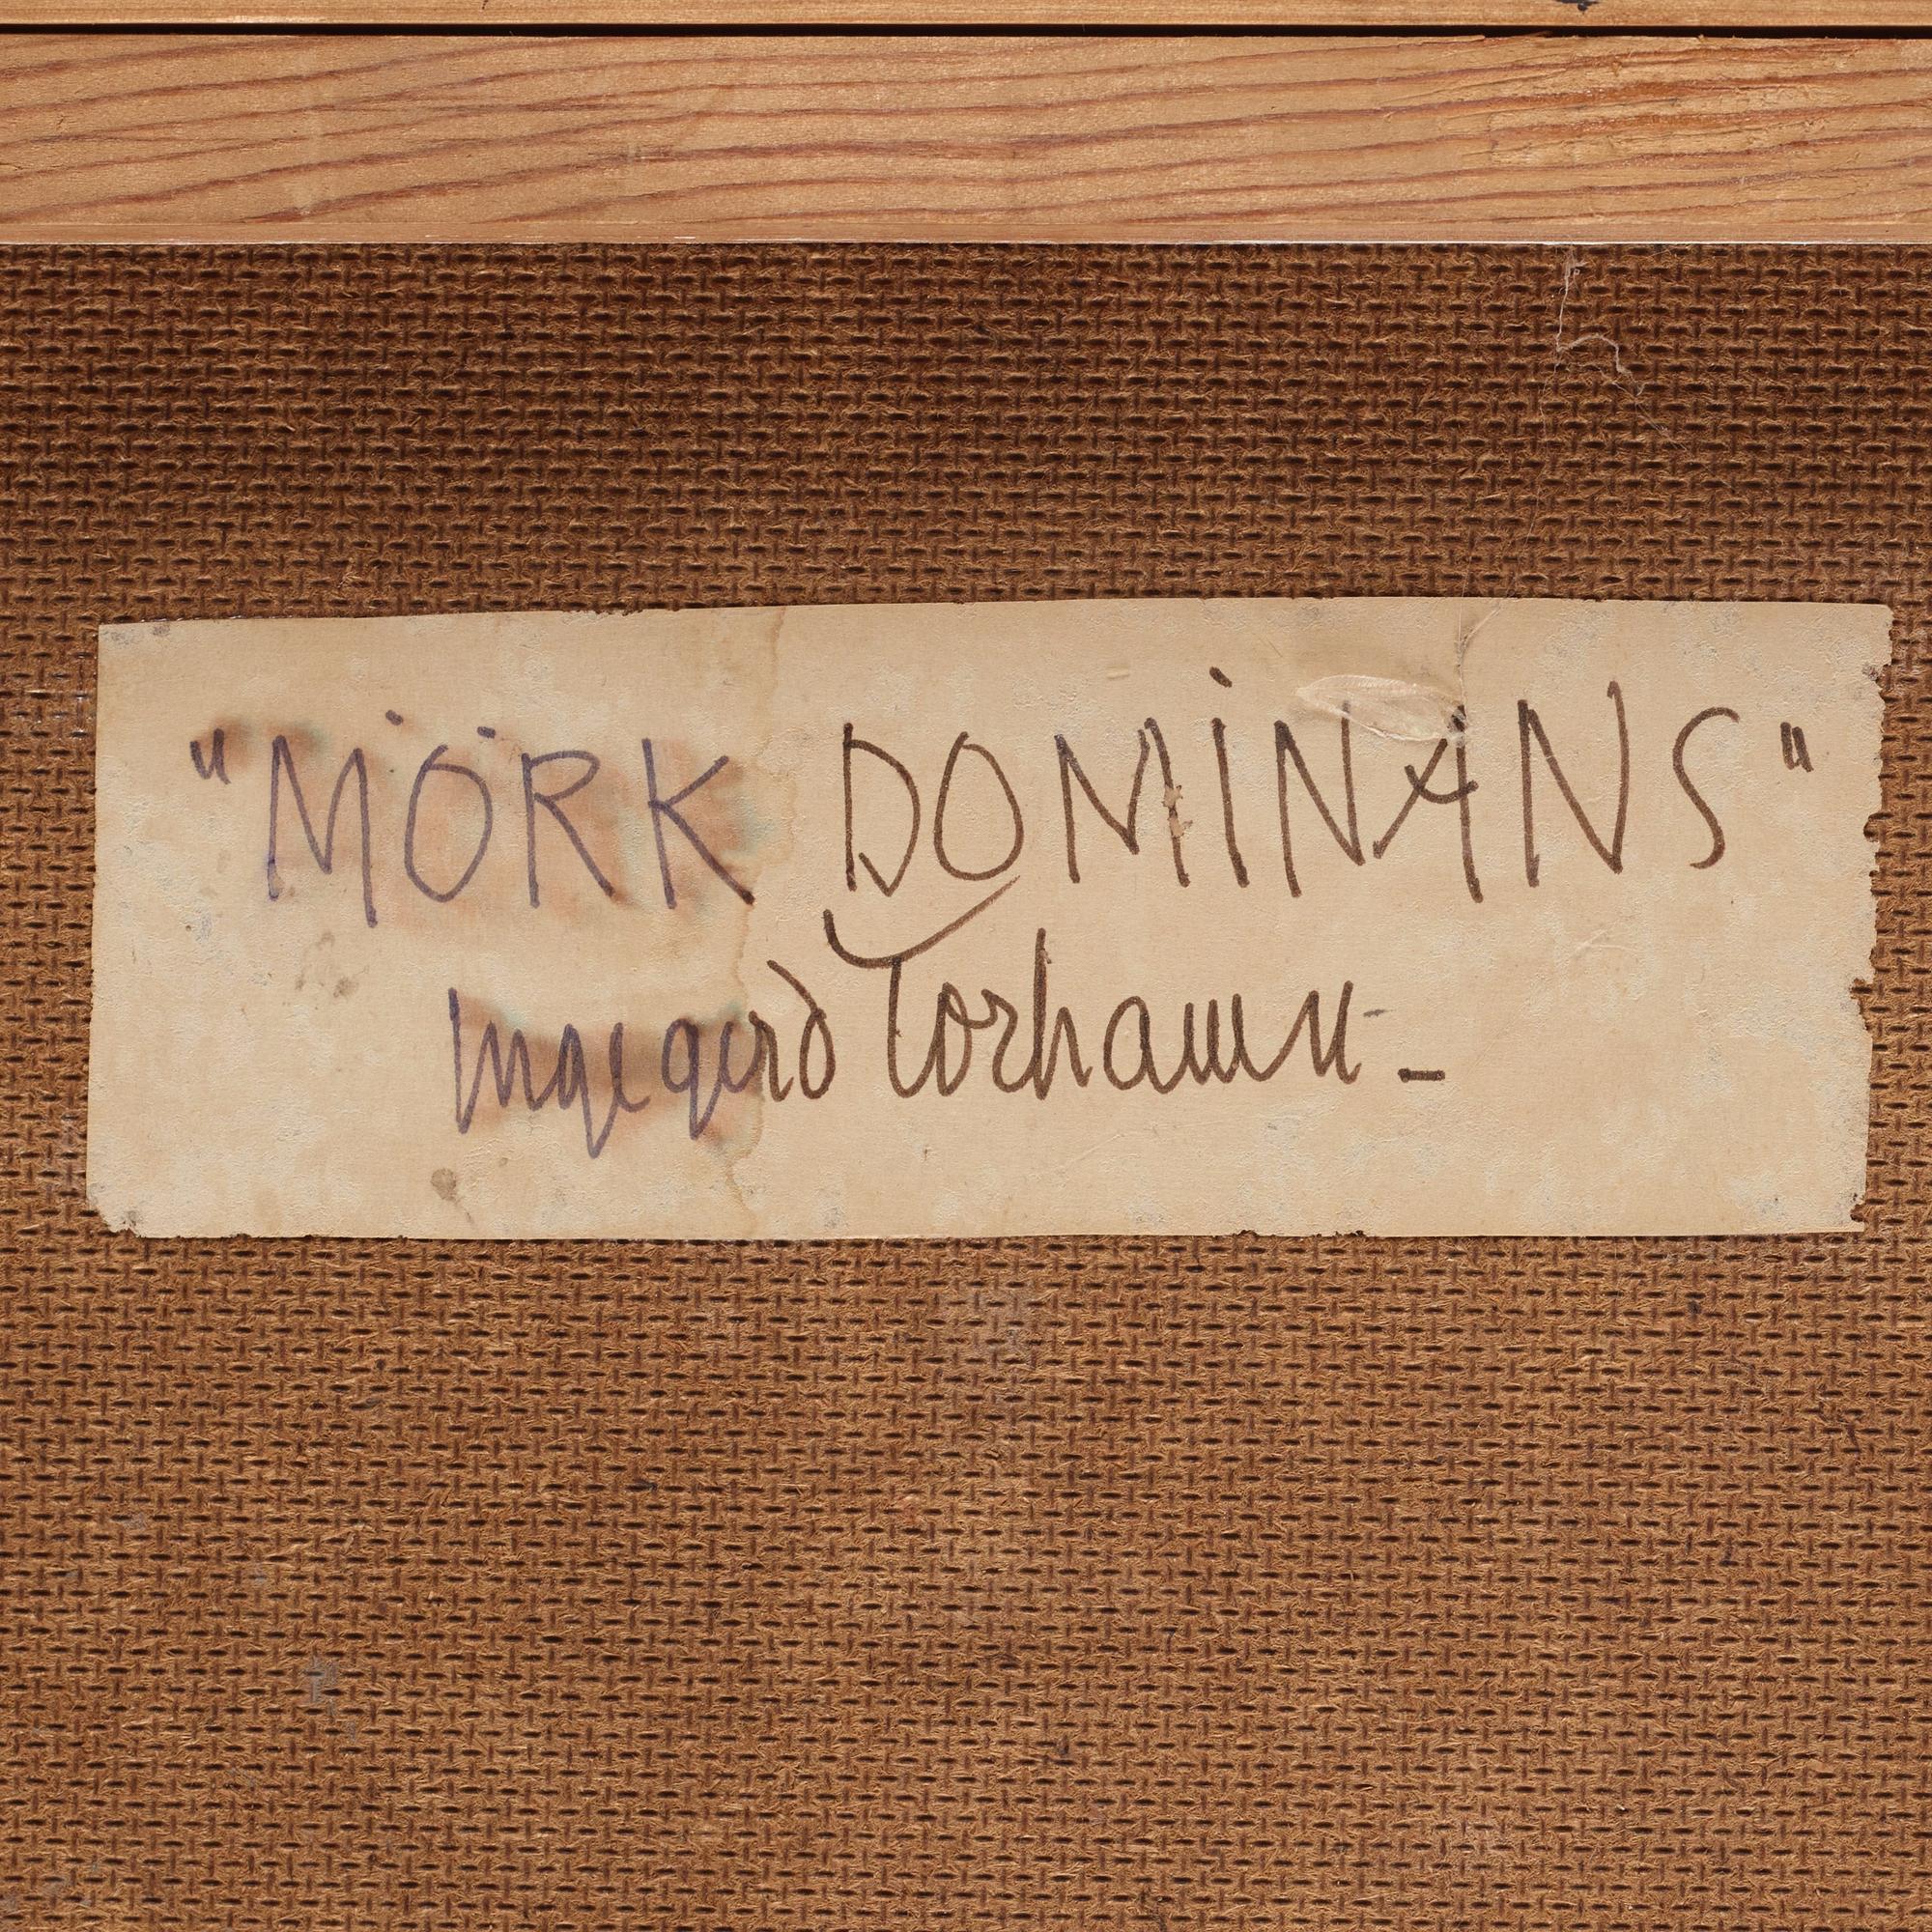 "MÖRK DOMINANS"
Ingegerd Torhamn-